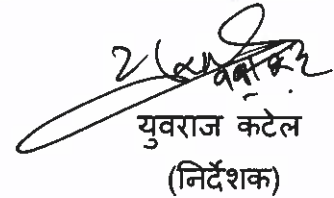 युवराज कटेल
(निर्देशक)